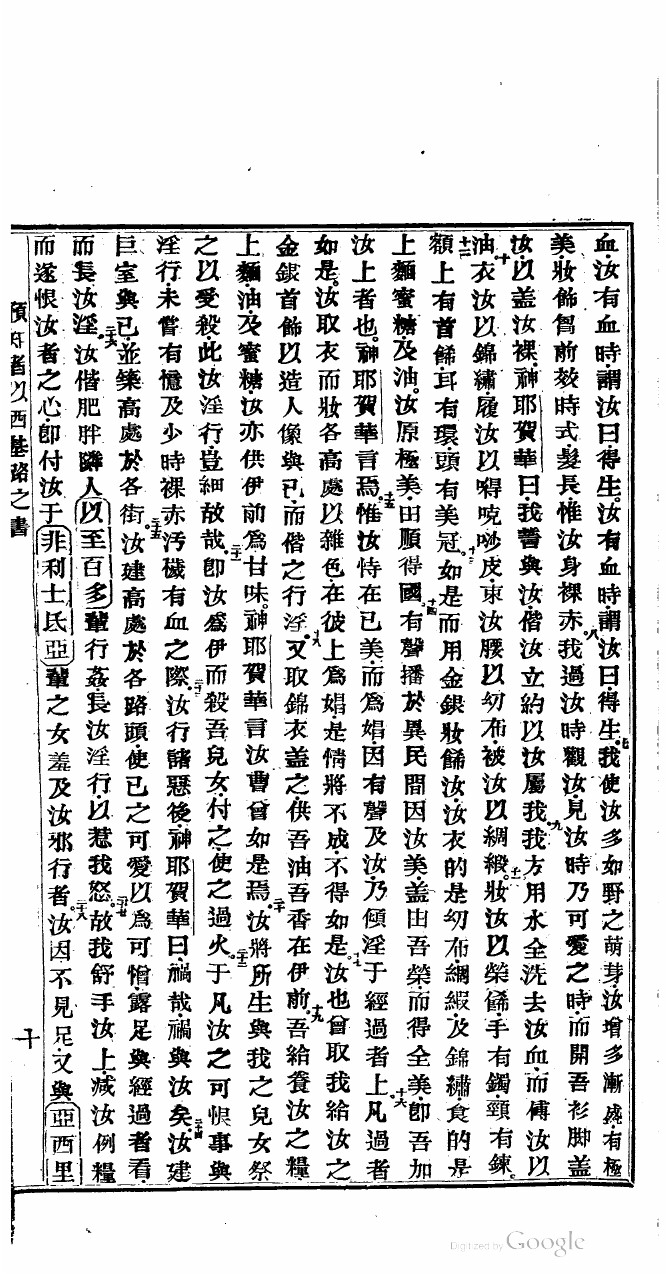 血汝有血時謂汝曰得生。汝有血時謂汝曰得生。七我使汝多如野之萌芽汝增多漸盛有極
美妝飾智前效時式髮長惟汝身裸赤八我過汝時觀汝見汝時乃可愛之時而開吾衫脚蓋
汝以蓋汝裸神耶賀華曰我誓與汝偕汝立約以汝屬我九我方用水全洗去汝血而傅汝以
油十衣汝以錦繡履汝以嘚唬𠵇皮束汝腰以幼布被汝以綢緞十一妝汝以榮餙手有鐲頸有鍊
十二額上有首餙耳有環頭有美冠十三如是而用金銀妝餙汝汝衣的是幼布綢緞及錦繡食的是
上麵蜜糖及油汝原極美田順得國十四有聲播於異民間因汝美蓋由吾榮而得全美即吾加
汝上者也神耶賀華言焉十五惟汝恃在已美而為娼因有聲及汝乃傾淫于經過者上凡過者十六
如是汝取衣而妝各高處以雜色在彼上為娼是情將不成不得如是十七汝也曾取我給汝之
金銀首飾以造人像與已而偕之行淫十八又取錦衣蓋之供吾油吾香在伊前十九吾給養汝之糧
上麵油及蜜糖汝亦供伊前為甘味神耶賀華言汝曹曾如是焉二十汝將所生與我之兒女祭
之以愛殺此汝淫行豈細故哉二十一即汝為伊而殺吾兒女付之使之過火二十二于凡汝之可恨事與
淫行未嘗有憶及少時裸赤汚穢有血之際二十三汝行諸惡後神耶賀華曰禍哉禍與汝矣二十四汝建
巨室與已並築高處於各街二十五汝建高處於各路頭使已之可愛以為可憎露足與經過者看
而長汝淫二十六汝偕肥胖隣人以至百多輩行姦長汝淫行以惹我怒二十七故我舒手汝上減汝例糧
而遂恨汝者之心即付汝于非利士氏亞輩之女羞及汝邪行者二十八汝因不見足又與亞西里
預知者以西基路之書
十
Digitized by Google